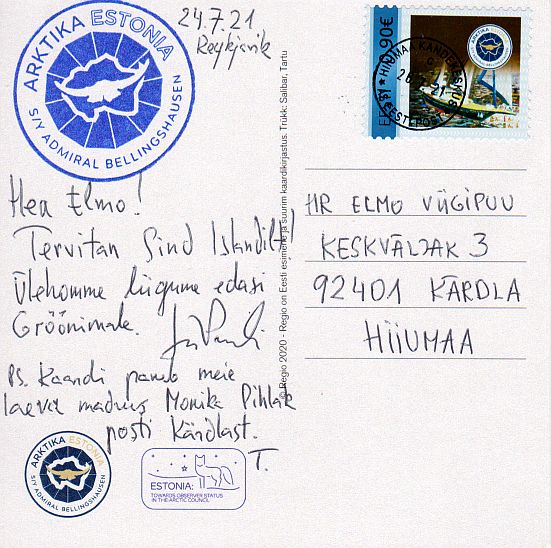 24.7.21
Reykjavik
ARKTIKA ESTONIA
S/Y ADMIRAL BELLINGSHAUSEN
0,90€
EESTI
HIIUMAA
EESTI POST
Hea Elmo!
Tervitan Sind Islandilt!
Ülehomme liigume edasi
Gröönimale.
Ps. Kaardi paneb meie
laeva madrus Monika Pihlak
posti Kärdlast.
T.
© Regio 2020 - Regio on Eesti esimene ja suurim kaardikirjastus. Trükk: Salibar, Tartu
HR ELMO VIIGIPUU
KESKVÄLJAK 3
92401 KÄRDLA
HIIUMAA
ARKTIKA ESTONIA
S/Y ADMIRAL BELLINGSHAUSEN
ESTONIA:
TOWARDS OBSERVER STATUS
IN THE ARCTIC COUNCIL